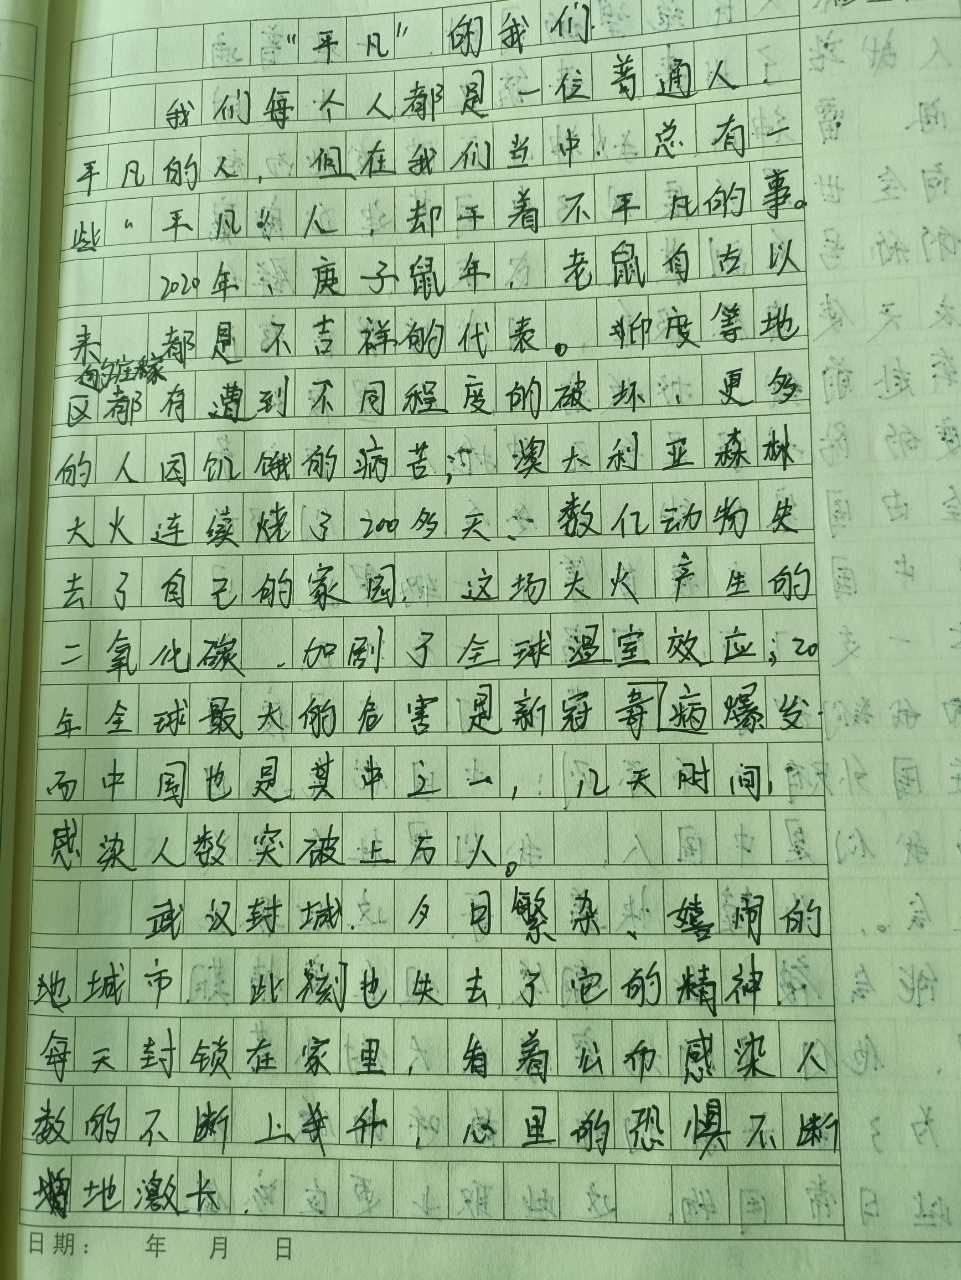 “平凡”的我们
我们每个人都是一位普通人.
平凡的人,但在我们当中.总有一
些“平凡”人,却干着不平凡的事。
2020年、庚子鼠年,老鼠自古以
来都是不吉祥的代表。印度等地
的庄稼
区都有遭到不同程度的破坏,更多
的人因饥饿的病苦;澳大利亚森林
大火连续烧了200多天、数亿动物失
去了自己的家园.这场大火产生的
二氧化碳.加剧了全球温室效应;20
年全球最大的危害是新冠毒病爆发.
而中国也是其中之一,几天时间,
感染人数突破上万人。
武汉封城.夕日繁杂、嬉闹的
地城市.此刻也失去了它的精神.
每天封锁在家里,看着公布感染人
数的不断上升,心里的恐惧不断
增地激长.
日期: 年 月 日